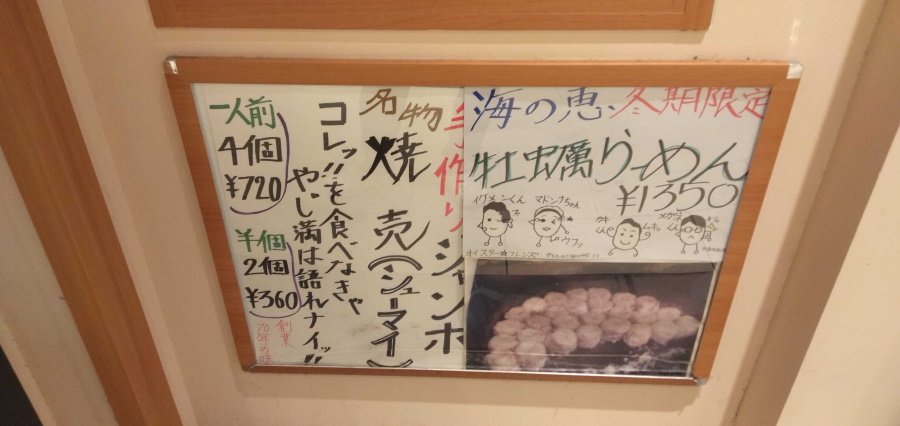 海の恵 冬期限定
牡蠣らーめん
¥1350
イケメンくん
マドンナちゃん
ウフッ
ムキッ
オイスター★フレンズ
手作りジャンボ
名物 焼売(シューマイ)
コレッ!!を食べなきゃ
やじ満は語れナイッ!!
一人前
4個
¥720
半個
2個
¥360
創業
70年の味